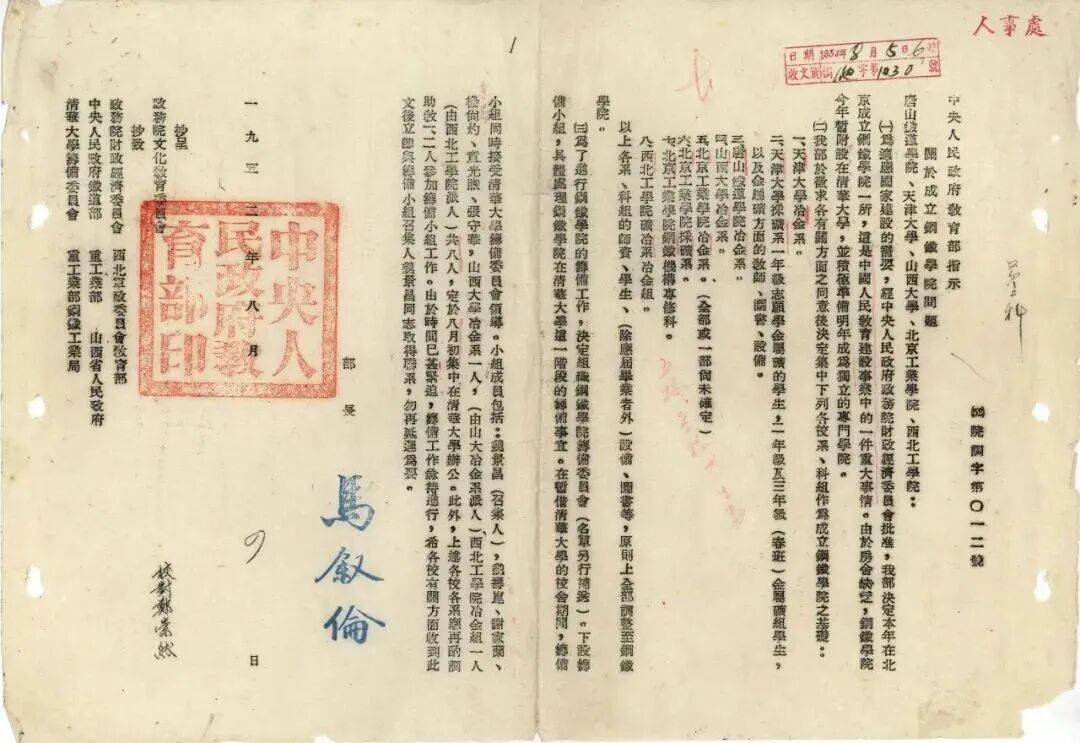 人事處
日期 1952年8月5日
收文 字第1030號
院調字第〇一二號
中央人民政府教育部指示
關於成立鋼鐵學院問題
唐山鐵道學院、天津大學、山西大學、北京工業學院、西北工學院：
㈠為適應國家建設的需要，經中央人民政府政務院財政經濟委員會批准，我部決定本年在北
京成立鋼鐵學院一所，這是中國人民教育建設事業中的一件重大事情。由於房舍缺乏，鋼鐵學院
今年暫附設在清華大學，並積極準備明年成為獨立的專門學院。
㈡我部於徵求各有關方面之同意後決定集中下列各校系、科組作為成立鋼鐵學院之基礎：
一、天津大學冶金系。
二、天津大學採礦系一年級志願學金屬礦的學生，二年級及三年級（春班）金屬礦組學生，
以及金屬礦方面的教師、圖書、設備。
三、唐山鐵道學院冶金系。
四、山西大學冶金系。
五、北京工業學院冶金系。（全部或一部尚未確定）
六、北京工業學院採礦系。
七、北京工業學院鋼鐵機械專修科。
八、西北工學院礦冶系冶金組。
以上各系、科組的師資、學生、（除應屆畢業者外）設備、圖書等，原則上全部調整至鋼鐵
學院。
㈢為了進行鋼鐵學院的籌備工作，決定組織鋼鐵學院籌備委員會（名單另行補送）。下設籌
備小組，具體處理鋼鐵學院在清華大學這一階段的籌備事宜。在暫借清華大學的校舍期間，籌備
1
小組同時接受清華大學籌備委員會領導。小組成員包括：魏景昌（召集人），魏壽崑、謝家蘭、
楊尚灼、童光煦、張守華，山西大學冶金系一人，（由山大冶金系派人）西北工學院冶金組一人
（由西北工學院派人）共八人，定於八月初集中在清華大學辦公。此外，上述各校各系應再酌調
助教一、二人參加籌備小組工作。由於時間已甚緊迫，籌備工作亟待進行，希各校有關方面收到此
文後立即與籌備小組召集人魏景昌同志取得聯系，勿再延遲為要。
部長
馬叙倫
一九五二年八月 日
中央人民政府教育部印
抄呈
政務院文化教育委員會
抄致
政務院財政經濟委員會 西北軍政委員會教育部
中央人民政府鐵道部 重工業部 山西省人民政府
清華大學籌備委員會 重工業部鋼鐵工業局
校對